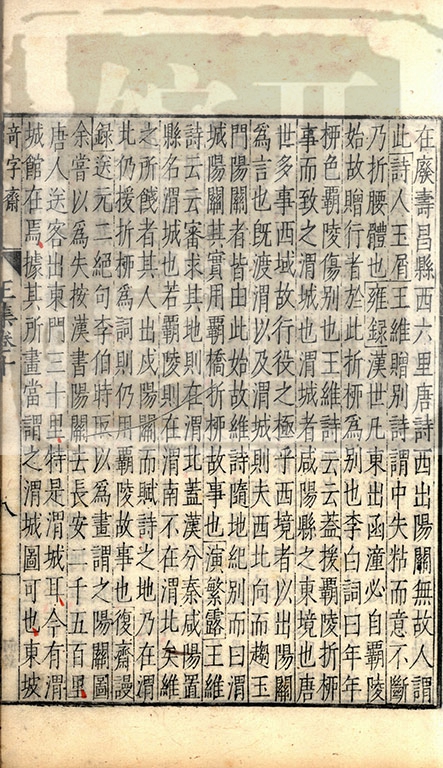 在廢壽昌縣西六里唐詩西出陽關無故人謂
此詩人玉屑王維贈别詩謂中失粘而意不斷
乃折腰體也雍録漢世凡東出函潼必自覇陵
始故贈行者於此折栁爲别也李白詞曰年年
栁色覇陵傷别也王維詩云云蓋援覇陵折栁
事而致之渭城也渭城者咸陽縣之東境也唐
世多事西域故行役之極乎西境者以出陽關
爲言也旣渡渭以及渭城則夫西北向而趨玉
門陽關者皆由此始故維詩隨地紀别而曰渭
城陽關其實用覇橋折栁故事也演繁露王維
詩云云審求其地則在渭北蓋漢分秦咸陽置
縣名渭城也若覇陵則在渭南不在渭北矣維
之所餞者其人出戍陽關而賦詩之地乃在渭
此仍援折栁爲詞則仍用覇陵故事也復齋謾
録送元二絕句李伯時取以爲畫謂之陽關圖
余嘗以爲失按漢書陽關去長安二千五百里
唐人送客出東門三十里特是渭城耳今有渭
城館在焉據其所畫當謂之渭城圖可也東坡
竒字齋
王集卷十
八